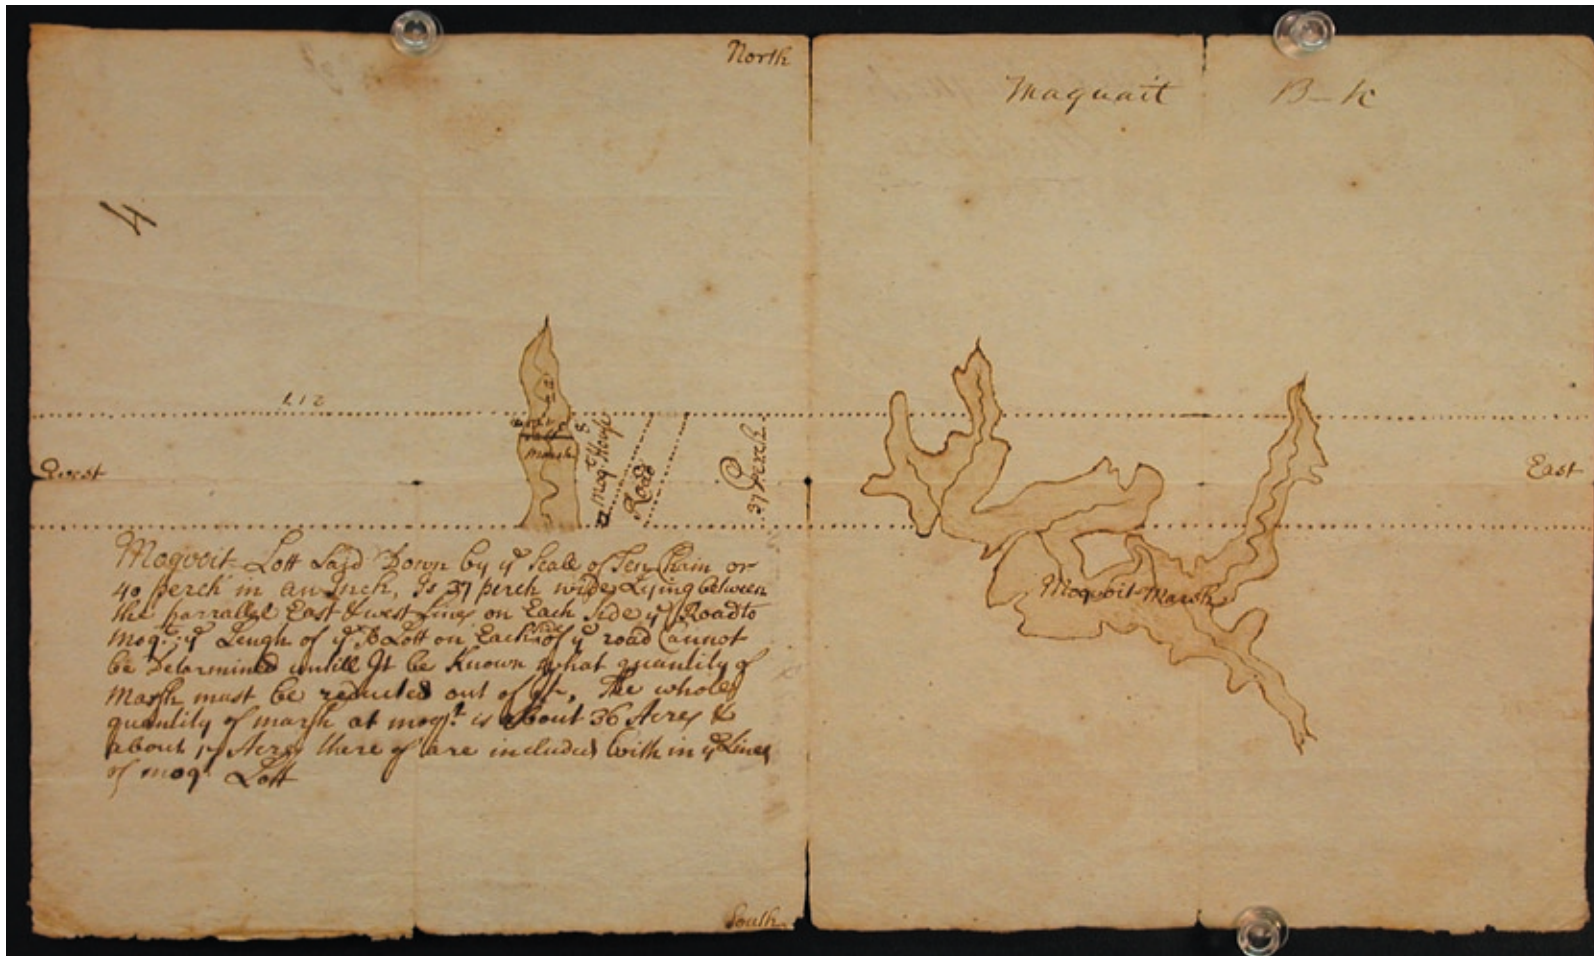 North
Maquait B-k
H
212
West
East
Marsh
8
Moqt House
Road
37 Perch
Moqoit Marsh
Moqoit Lott Laid Down by ye Scale of Ten Chain or
40 perch in an Inch, Is 37 perch wide, Lying between
the parralel East & west Lines on Each Side ye Road to
Moqt: ye Lengh of ye Lott on Each side of ye road Cannot
be Determined untill It be Known what quantity of
Marsh must be reducted out of it, The whole
quantity of marsh at moqt is about 36 Acres &
about 17 Acres there of are included with in ye Lines
of moqt Lott
South